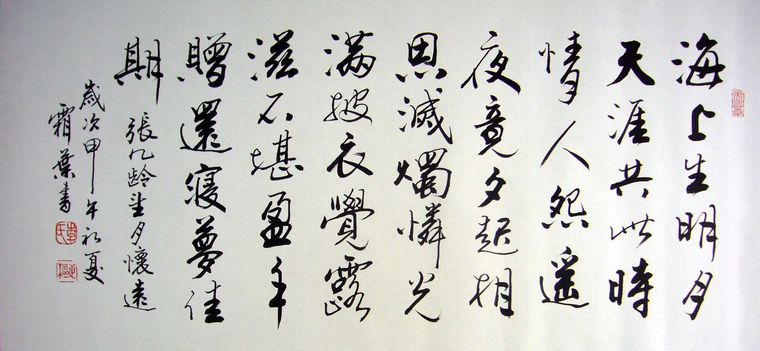 海上生明月
天涯共此時
情人怨遙
夜竟夕起相
思滅燭憐光
滿披衣覺露
滋不堪盈手
贈還寢夢佳
期
張九龄望月懷遠
歲次甲午初夏
霜葉書